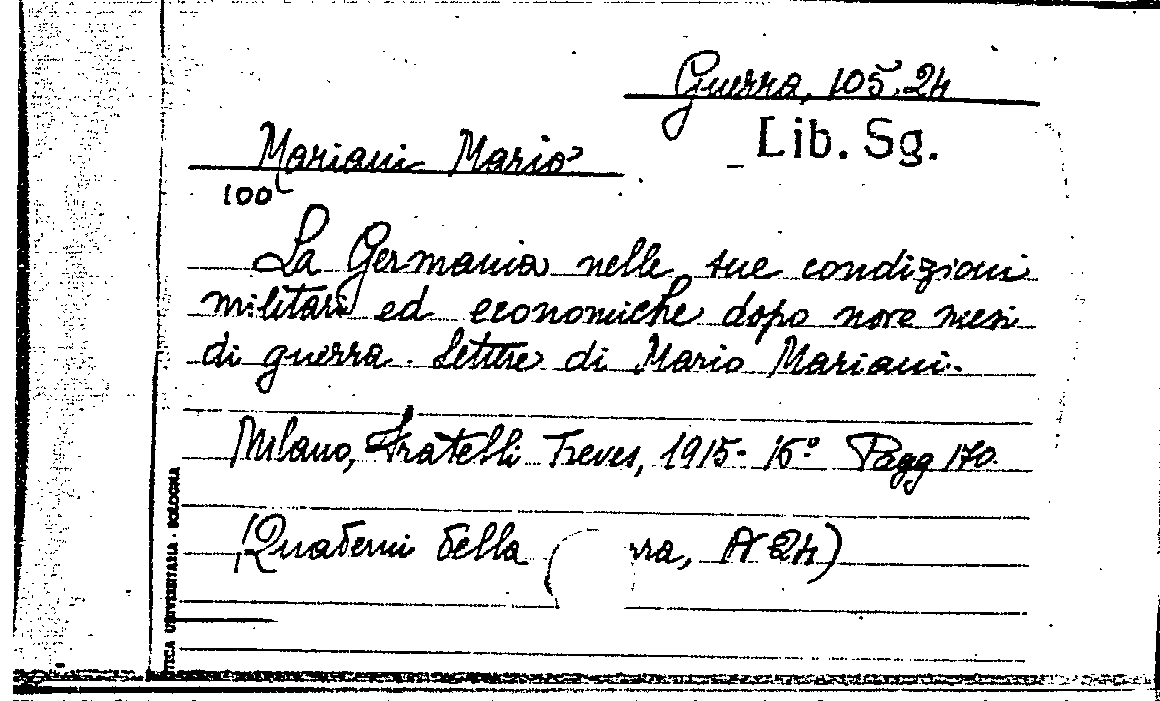 Guerra, 105.24
Lib. Sg.
Mariani Mario
100
La Germania nelle sue condizioni
militari ed economiche dopo nove mesi
di guerra. Lettere di Mario Mariani.
Milano, Fratelli Treves, 1915- 16° Pagg 170.
(Quaderni della rra, N 24)
TECA UNIVERSITARIA - BOLOGNA